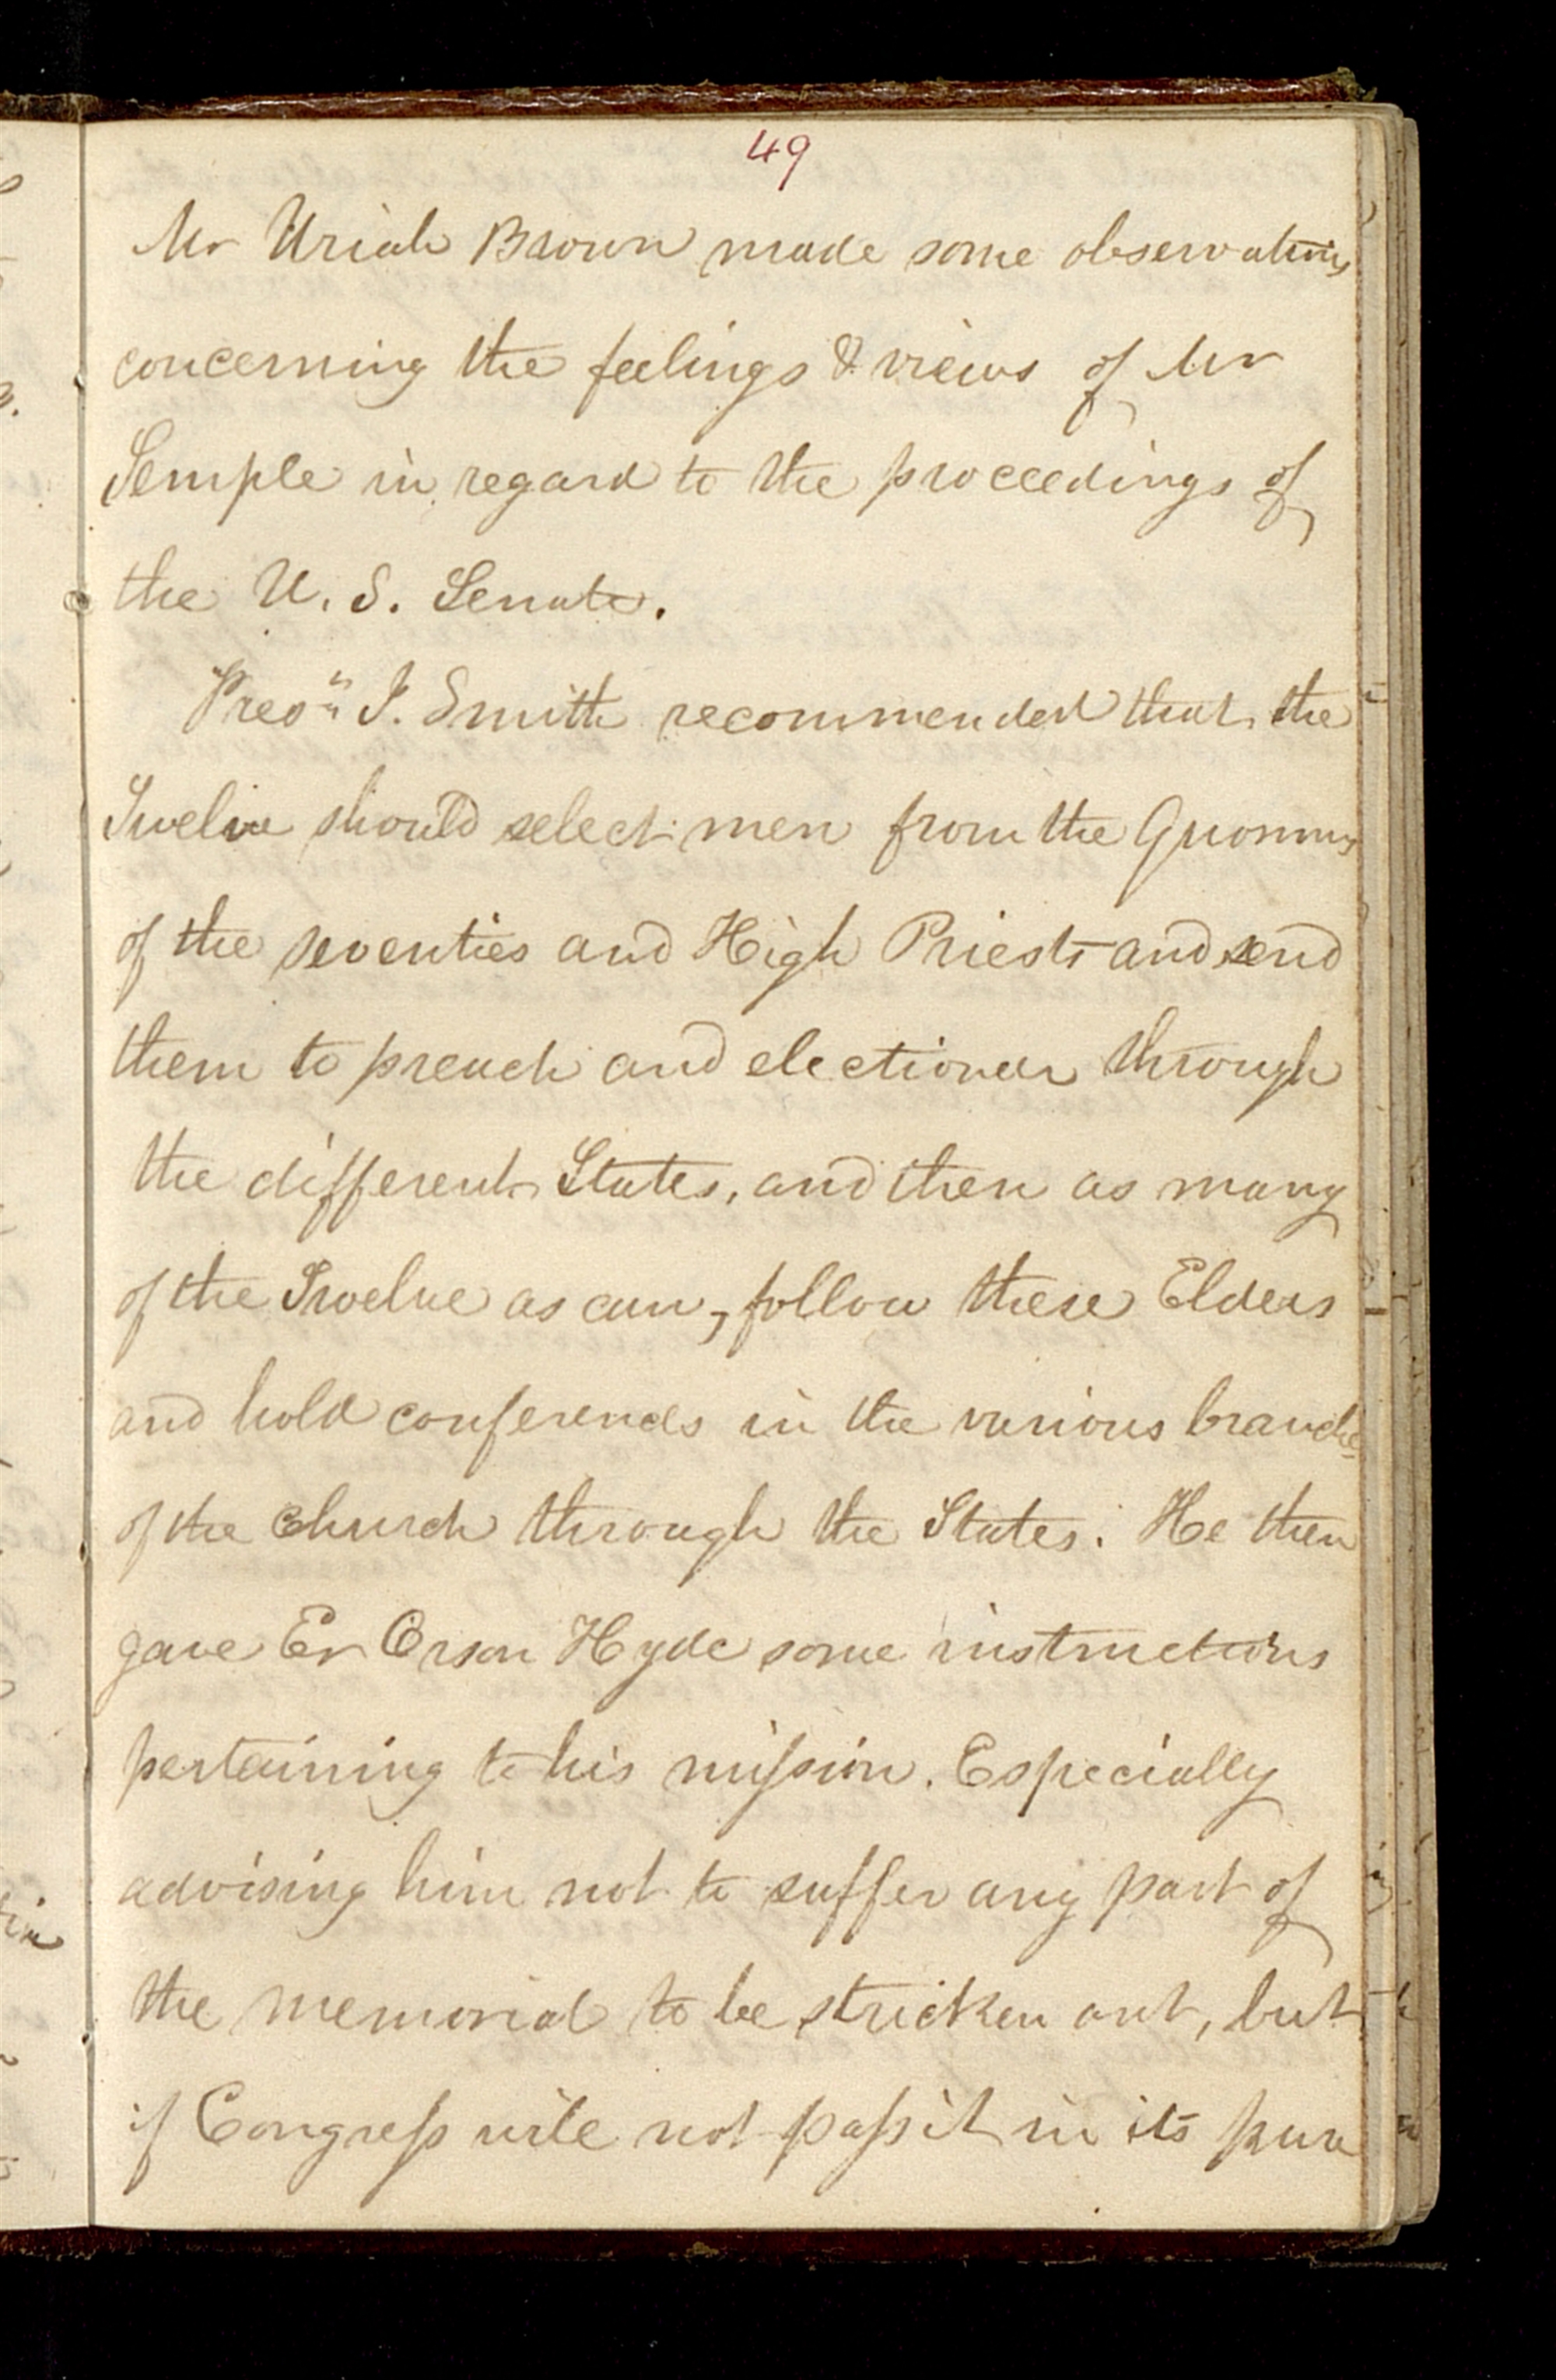 49
Mr Uriah Brown made some observations
concerning the feelings & views of Mr
Semple in regard to the proceedings of
the U. S. Senate.
Pres.t J. Smith recommended that the
Twelve should select men from the Quorums
of the seventies and High Priests and send
them to preach and electioneer through
the different States, and then as many
of the Twelve as can, follow these Elders
and hold conferences in the various branches
of the church through the States. He then
gave Er Orson Hyde some instructions
pertaining to his mission. Especially
advising him not to suffer any part of
the memorial to be stricken out, but
if Congress will not pass it in its pure